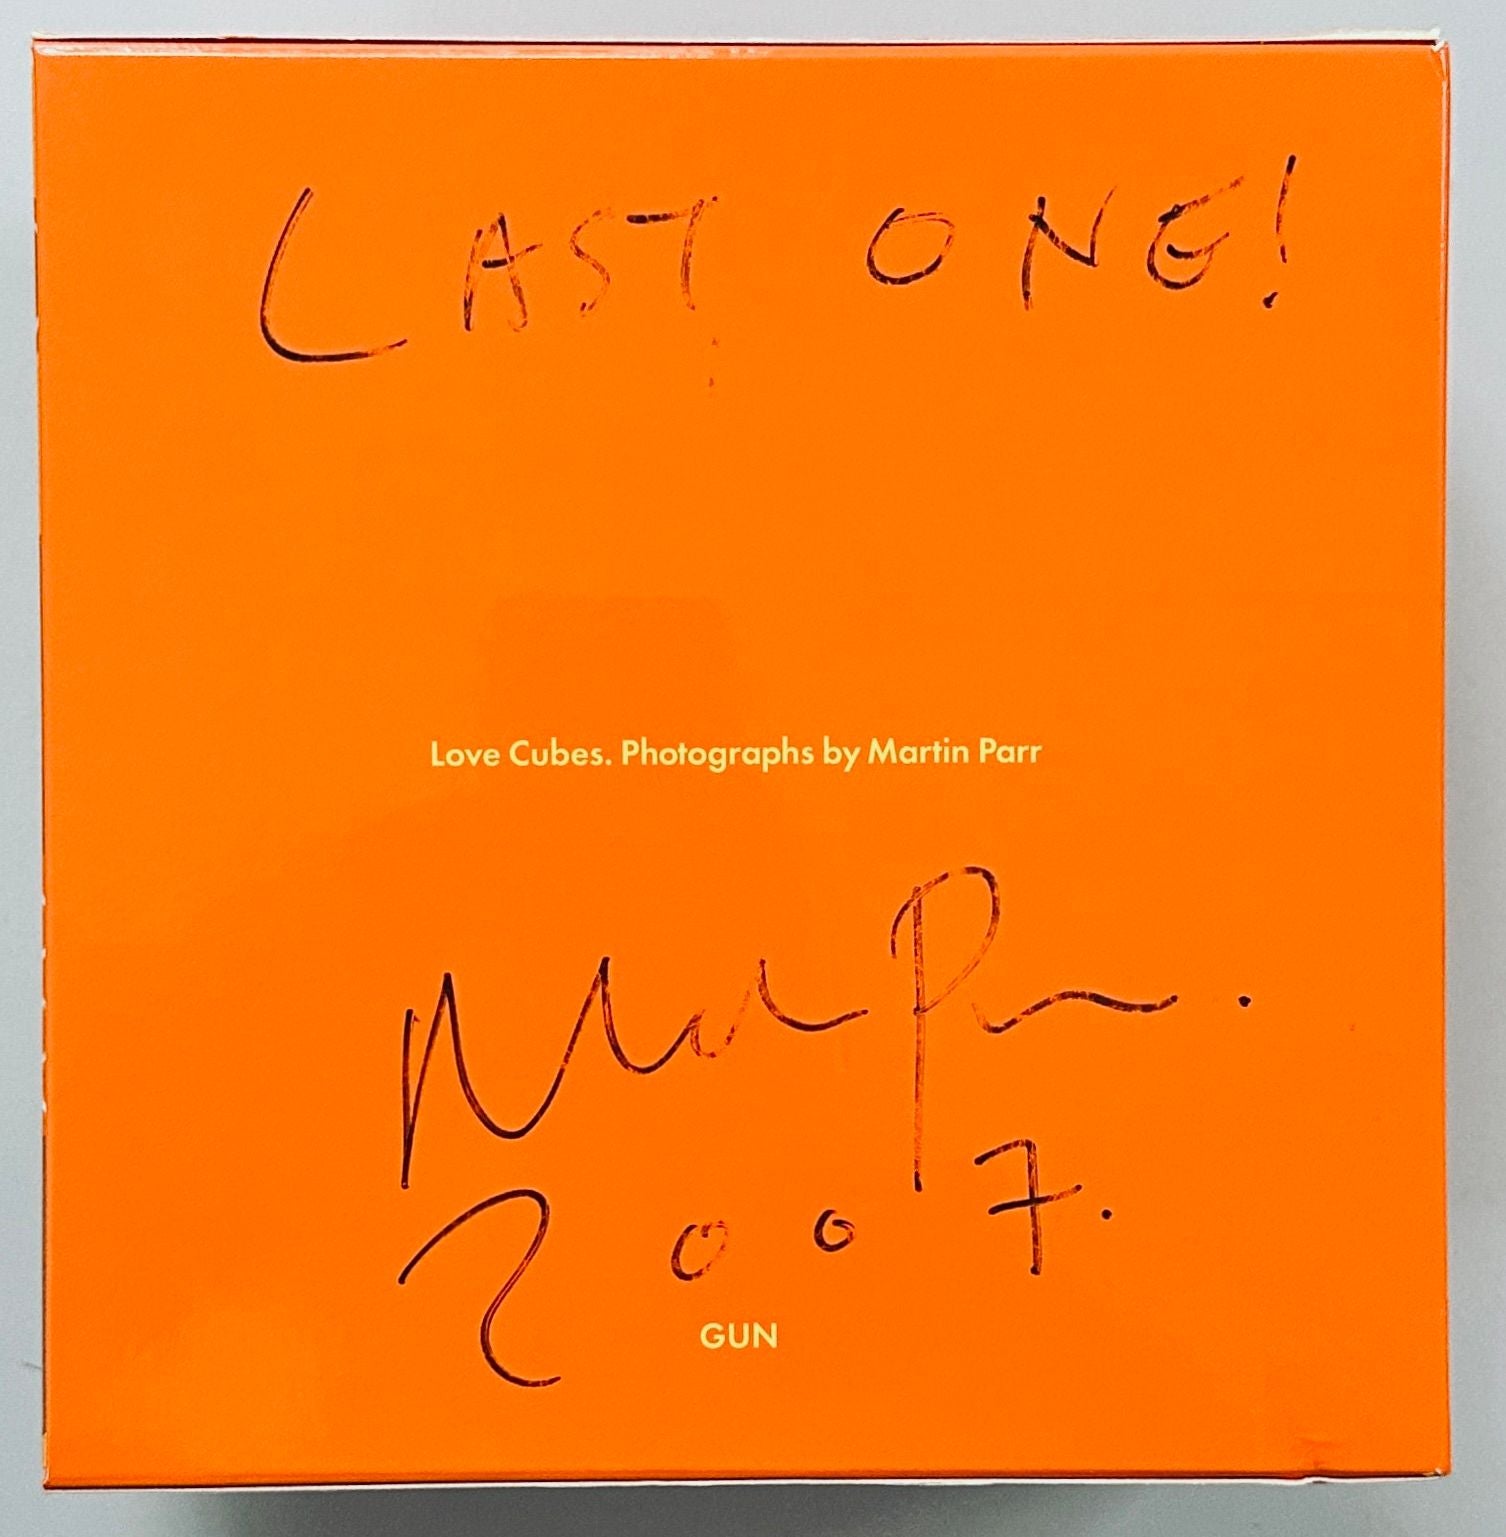 LAST ONE!
Love Cubes. Photographs by Martin Parr
Martin Parr.
2007.
GUN